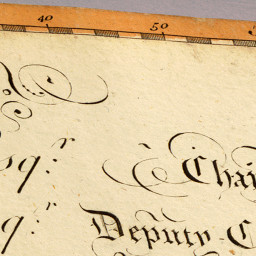 40 50
sqr. Chai
qr. Deputy-C